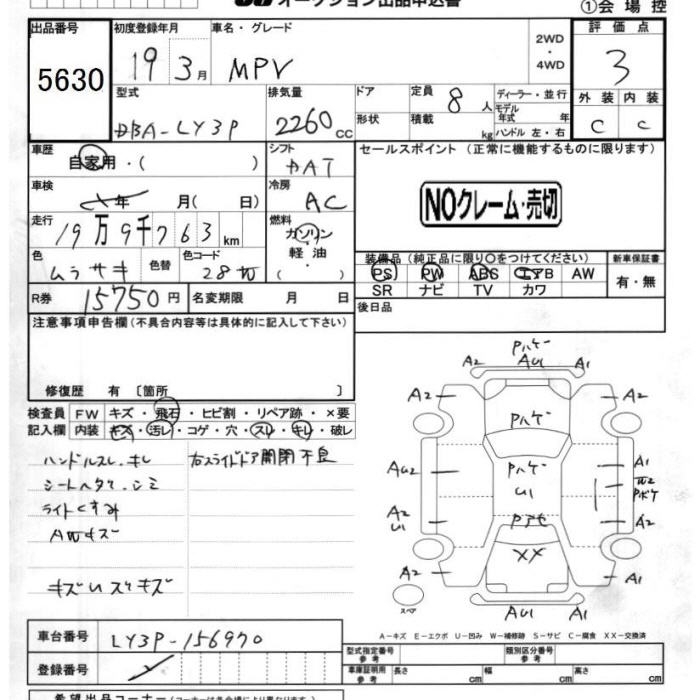 オークション出品申込書
①会場控
出品番号 5630
初度登録年月 19 3月
車名・グレード MPV
2WD・4WD
評価点 3
型式 DBA-LY3P
排気量 2260 CC
ドア 形状
定員 8人
積載 kg
ディーラー・並行
モデル年式 年
ハンドル 左・右
外装 C 内装 C
車歴 自家用・( )
シフト DAT
セールスポイント (正常に機能するものに限ります)
車検 年 月( 日)
冷房 AC
NOクレーム・売切
走行 19万9千763km
燃料 ガソリン 軽油
色 ムラサキ 色替 色コード 28
装備品 (純正品に限り○をつけてください)
新車保証書
PS PW ABS エアB AW
有・無
SR ナビ TV カワ
R券 15750円 名変期限 月 日
後日品
注意事項申告欄(不具合内容等は具体的に記入して下さい)
修復歴 有 〔箇所 〕
検査員記入欄
FW キズ・飛石・ヒビ割・リペア跡・×要
内装 キズ・汚レ・コゲ・穴・スレ・キレ・破レ
ハンドルスレ.キレ 右スライドドア開閉不良
シートヘタリ.シミ
ライトくすみ
AWキズ
キズUスリキズ
Pハゲ
A2 AU1 A1
A2 Pハゲ A2
AU2 Pハゲ A1
U1 W2 Pボケ
A2 U1 Pアセ A2
XX
A2 A1
スペア
AU1 A1
A-キズ E-エクボ U-凹み W-補修跡 S-サビ C-腐食 XX-交換済
車台番号 LY3P-156970
登録番号
型式指定番号 参考 類別区分番号 参考
車庫証明用 参考 長さ cm 幅 cm 高さ cm
希望出品コーナー